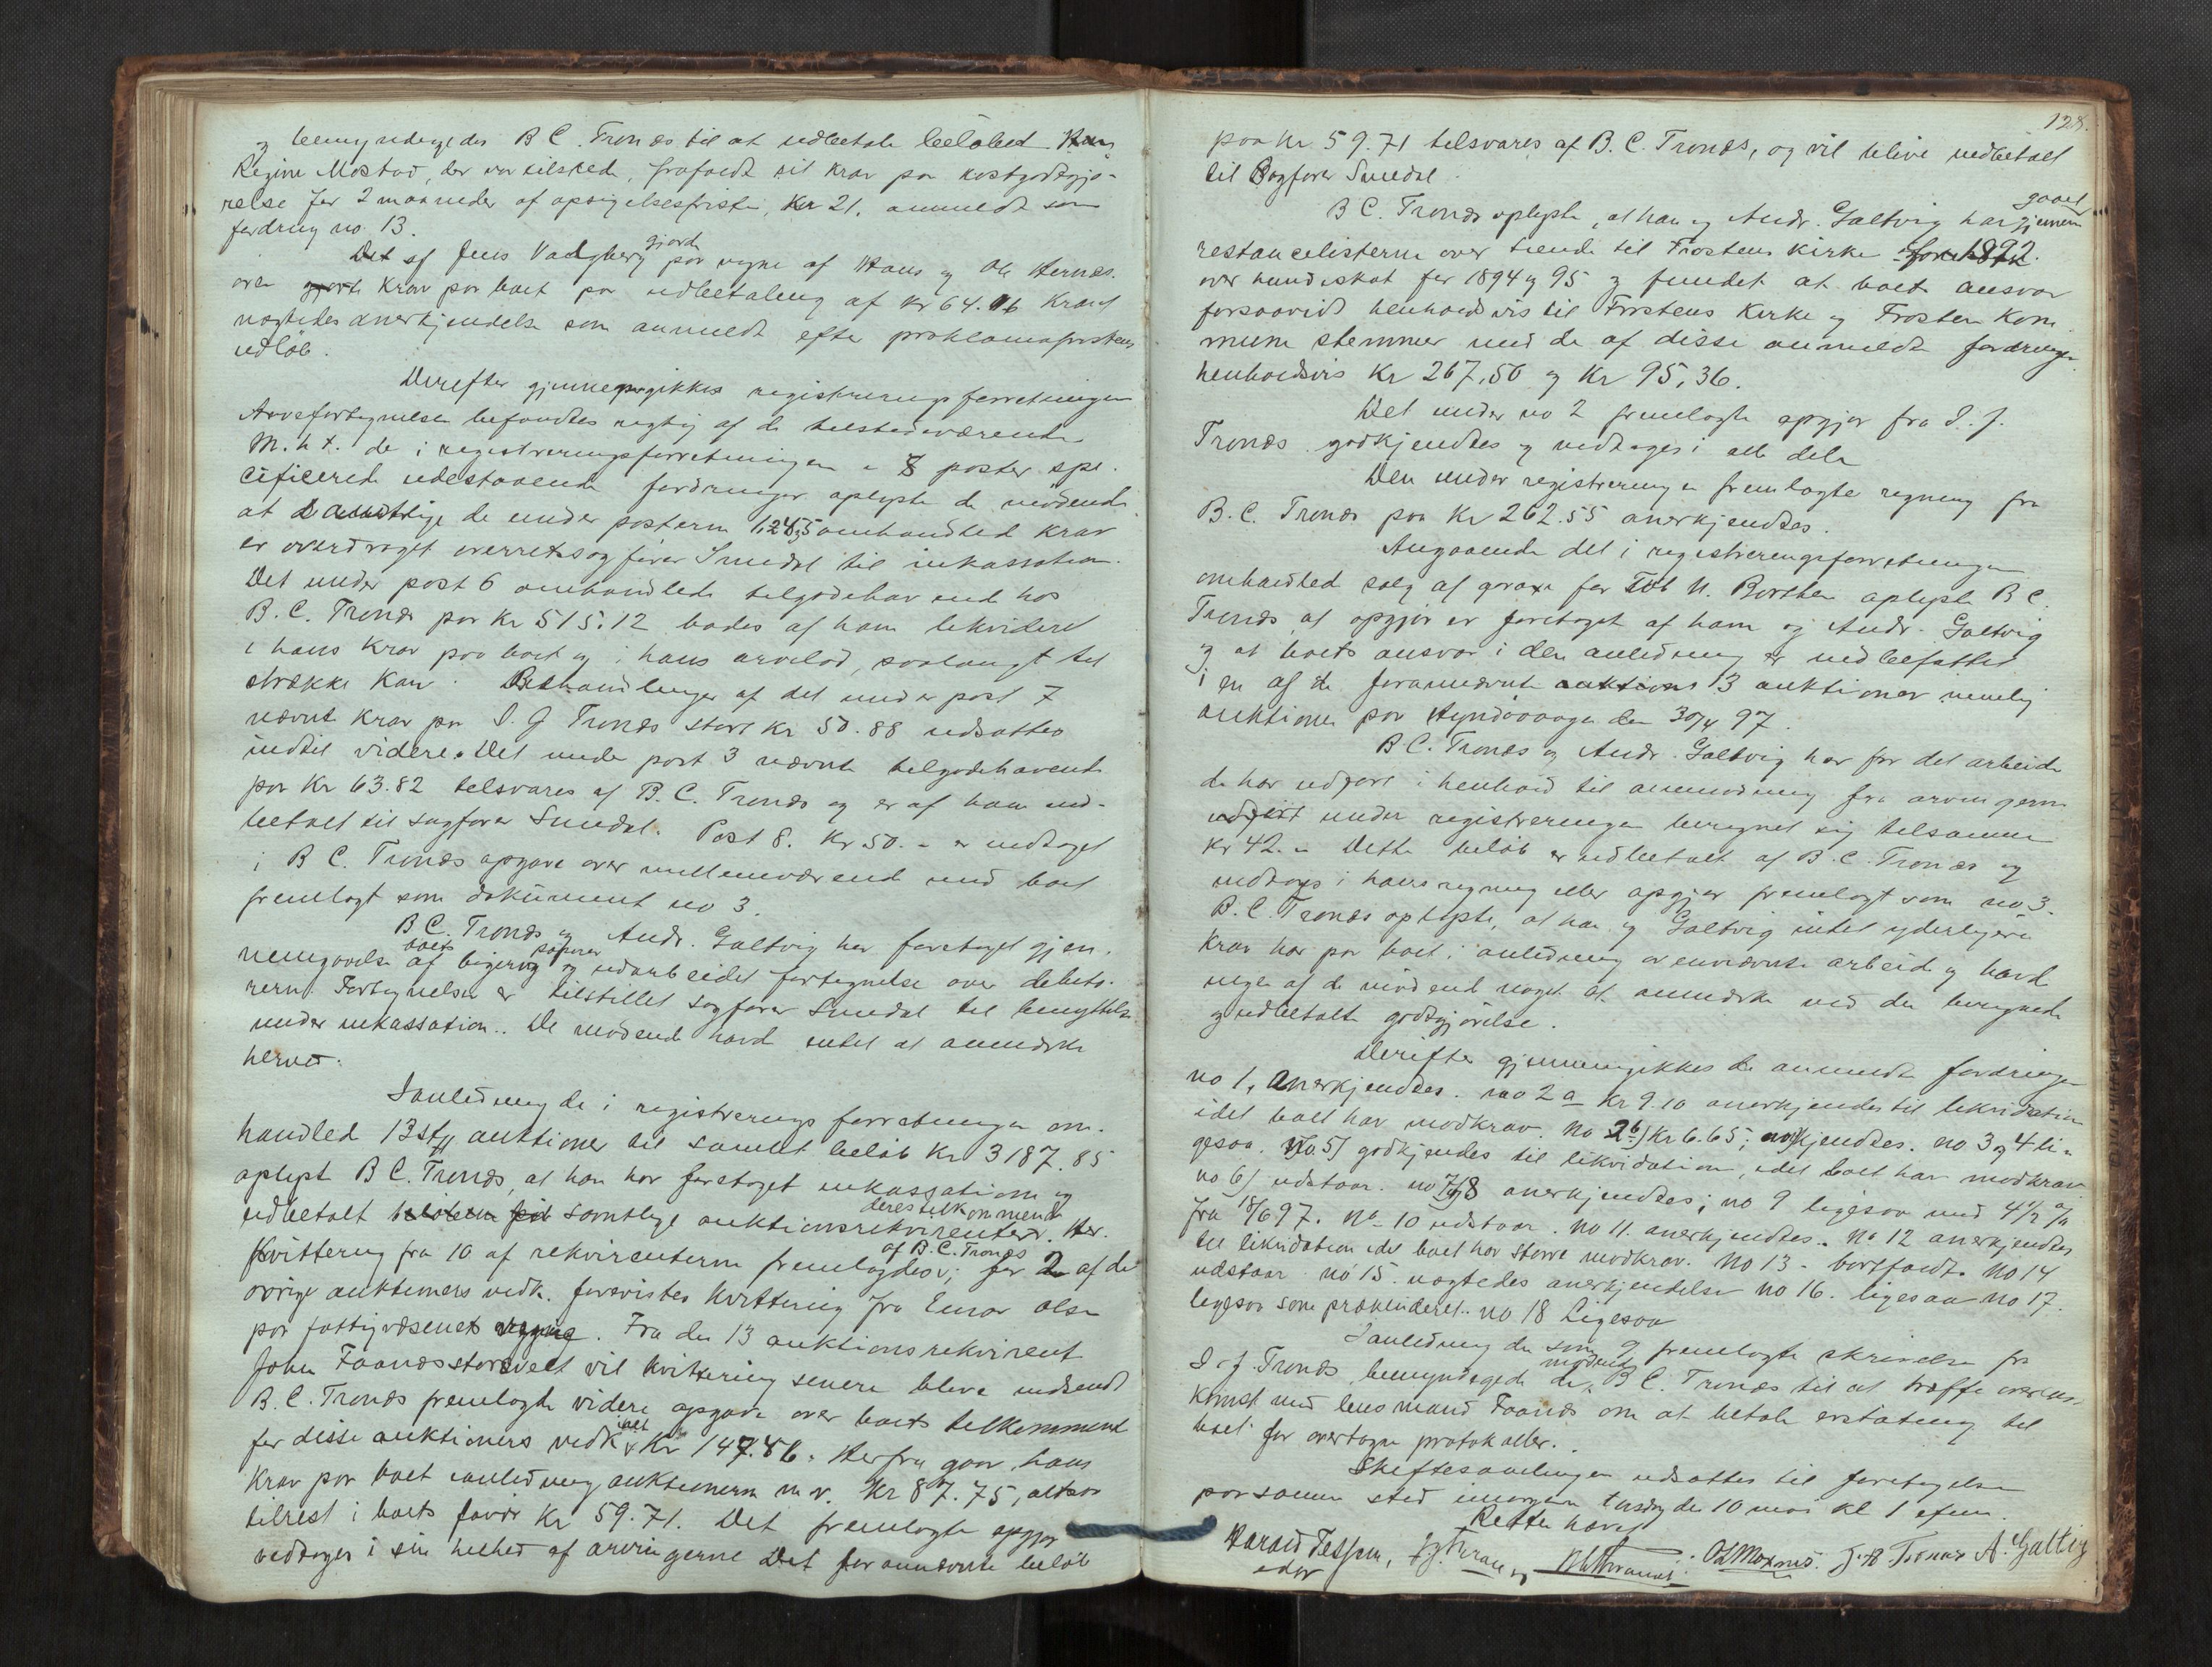 og bemyndigedes B C. Tronds til at udbetale beløbet.
Regine Mostad, der var tilstede, frafaldt sit krav paa kostgodtgjø-
relse for 2 maaneder af opsigelsesfristen, Kr 21. anmeldt som
fordring no 13.
Det af Jens Vadgberg gjorde paa vegne af Hans og Ole Hernes
krav paa boet paa udbetaling af Kr 64.16 Kravet
nægtedes anerkjendelse som anmeldt efter proklamafristens
udløb.
Derefter gjennemgikkes registreringsforretningen
Arvefortegnelsen befandtes rigtig af de tilstedeværende
M. h t. de i registreringsforretningen i 8 poster spe-
cificerede udestaaende fordringer oplyste de mødende
at samtlige de under posterne 1, 2, 4, 5 omhandlede krav
er overdraget overretssagfører Smedal til inkassation.
Det under post 6 omhandlede tilgodehavende hos
B. C. Tronds paa Kr 515.12 bades af ham likvideret
i hans krav paa boet og i hans arvelod, saalangt til
strække kan. Behandlingen af det under post 7
nævnte krav paa I. J Tronds stort Kr 50.88 udsattes
indtil videre. Det under post 3 nævnte tilgodehavende
paa Kr 63.82 tilsvares af B. C. Tronds og er af ham ind-
betalt til sagfører Smedal. Post 8. Kr 50.- er indtaget
i B C. Tronds opgave over mellemværende med boet
fremlagt som dokument no 3.
B C. Tronds og Andr. Galtvig har foretaget gjen-
nemgaaelse af boets papirer og udarbeidet fortegnelse over debito-
rerne. Fortegnelsen er tilstillet sagfører Smedal til benyttelse
under inkassation. De mødende havde intet at anmærke
herved.
I anledning de i registreringsforretningen om-
handlede 13 stk auktioner til samlet beløb Kr 3187.85
oplyste B C. Tronds, at han har foretaget inkassation og
udbetalt samtlige auktionsrekvirenter deres tilkommende.
Kvittering fra 10 af rekvirenterne fremlagdes af B. C. Tronds; for 2 af de
øvrige auktioners vedk. forevistes kvittering fra Einar Olsen
paa fattigvæsenets vegne. Fra den 13 auktionsrekvirent
John Faanesstorsveet vil kvittering senere blive indsendt
B. C. Tronds fremlagde videre opgave over boets tilkommende
for disse auktioners vedk. ialt Kr 147.46. Herfra gaar hans
krav paa boet i anledning auktionerne m v. Kr 87.75, altsaa
tilrest i boets favør Kr 59.71. Det fremlagte opgjør
vedtoges i sin helhed af arvingerne Det forannævnte beløb
128.
paa Kr 59.71 tilsvares af B. C. Tronds, og vil blive indbetalt
til Sagfører Smedal.
B C. Tronds oplyste, at han og Andr. Galtvig har gaaet gjennem
restancelisterne over tiende til Frostens Kirke for 1892.
over hundeskat for 1894 og 95 og fundet at boets ansvar
forsaavidt henholdsvis til Frostens Kirke og Frosten Kom-
mune stemmer med de af disse anmeldte fordringer
henholdsvis Kr 267,50 og Kr 95,36.
Det under no 2 fremlagte opgjør fra I. J.
Tronds godkjendtes og vedtoges i alle dele
Den under registreringen fremlagte regning fra
B. C. Tronds paa Kr 262.55 anerkjendtes.
Angaaende det i registreringsforretningen
omhandlede salg af for N. Borthen oplyste B C.
Tronds at opgjør er foretaget af ham og Andr. Galtvig
og at boets ansvar i den anledning er indbefattet
i en af de forannævnte 13 auktioner nemlig
auktionen paa den 30/4 97.
B. C. Tronds og Andr. Galtvig har for det arbeide
de har udført i henhold til anmodning fra arvingerne
under registreringen beregnet sig tilsammen
Kr 42.- Dette beløb er udbetalt af B. C. Tronds og
indtages i hans regning eller opgjør fremlagt som no 3.
B. C. Tronds oplyste, at han og Galtvig intet yderligere
krav har paa boet i anledning ovennævnte arbeide og havde
ingen af de mødende noget at anmærke ved den beregnede
og udbetalte godtgjørelse.
Derefter gjennemgikkes de anmeldte fordringer
no 1, anerkjendtes. no 2 a Kr 9.10 anerkjendes til likvidation
idet boet har modkrav. no 2 b) Kr 6.65; anerkjendtes. no 3 og 4 li-
gesaa. No 5) godkjendes til likvidation, idet boet har modkrav
no 6) udstaar. no 7 og 8 anerkjendtes; no 9 ligesaa med 4 1/2 %
fra 18/6 97. No 10 udstaar. no 11. anerkjendtes. No 12 anerkjendtes
til likvidation idet boet har større modkrav. No 13 - bortfaldt. No 14
udstaar no 15. nægtedes anerkjendelse no 16. ligesaa no 17.
ligesaa som prækluderet. no 18 Ligesaa
I anledning den som 9 fremlagte skrivelse fra
I. J. Tronds bemyndigede de mødende B C. Tronds til at træffe overens-
komst med lensmand Faanes om at betale erstatning til
boet for overtagne protokoller.
Skiftesamlingen udsattes til foretagelse
paa samme sted imorgen tirsdag den 10 mai kl 1 efterm.
Retten hævet
Harald Jessen, O L Moxnes. J. A Tronds A. Galtvig
edsv